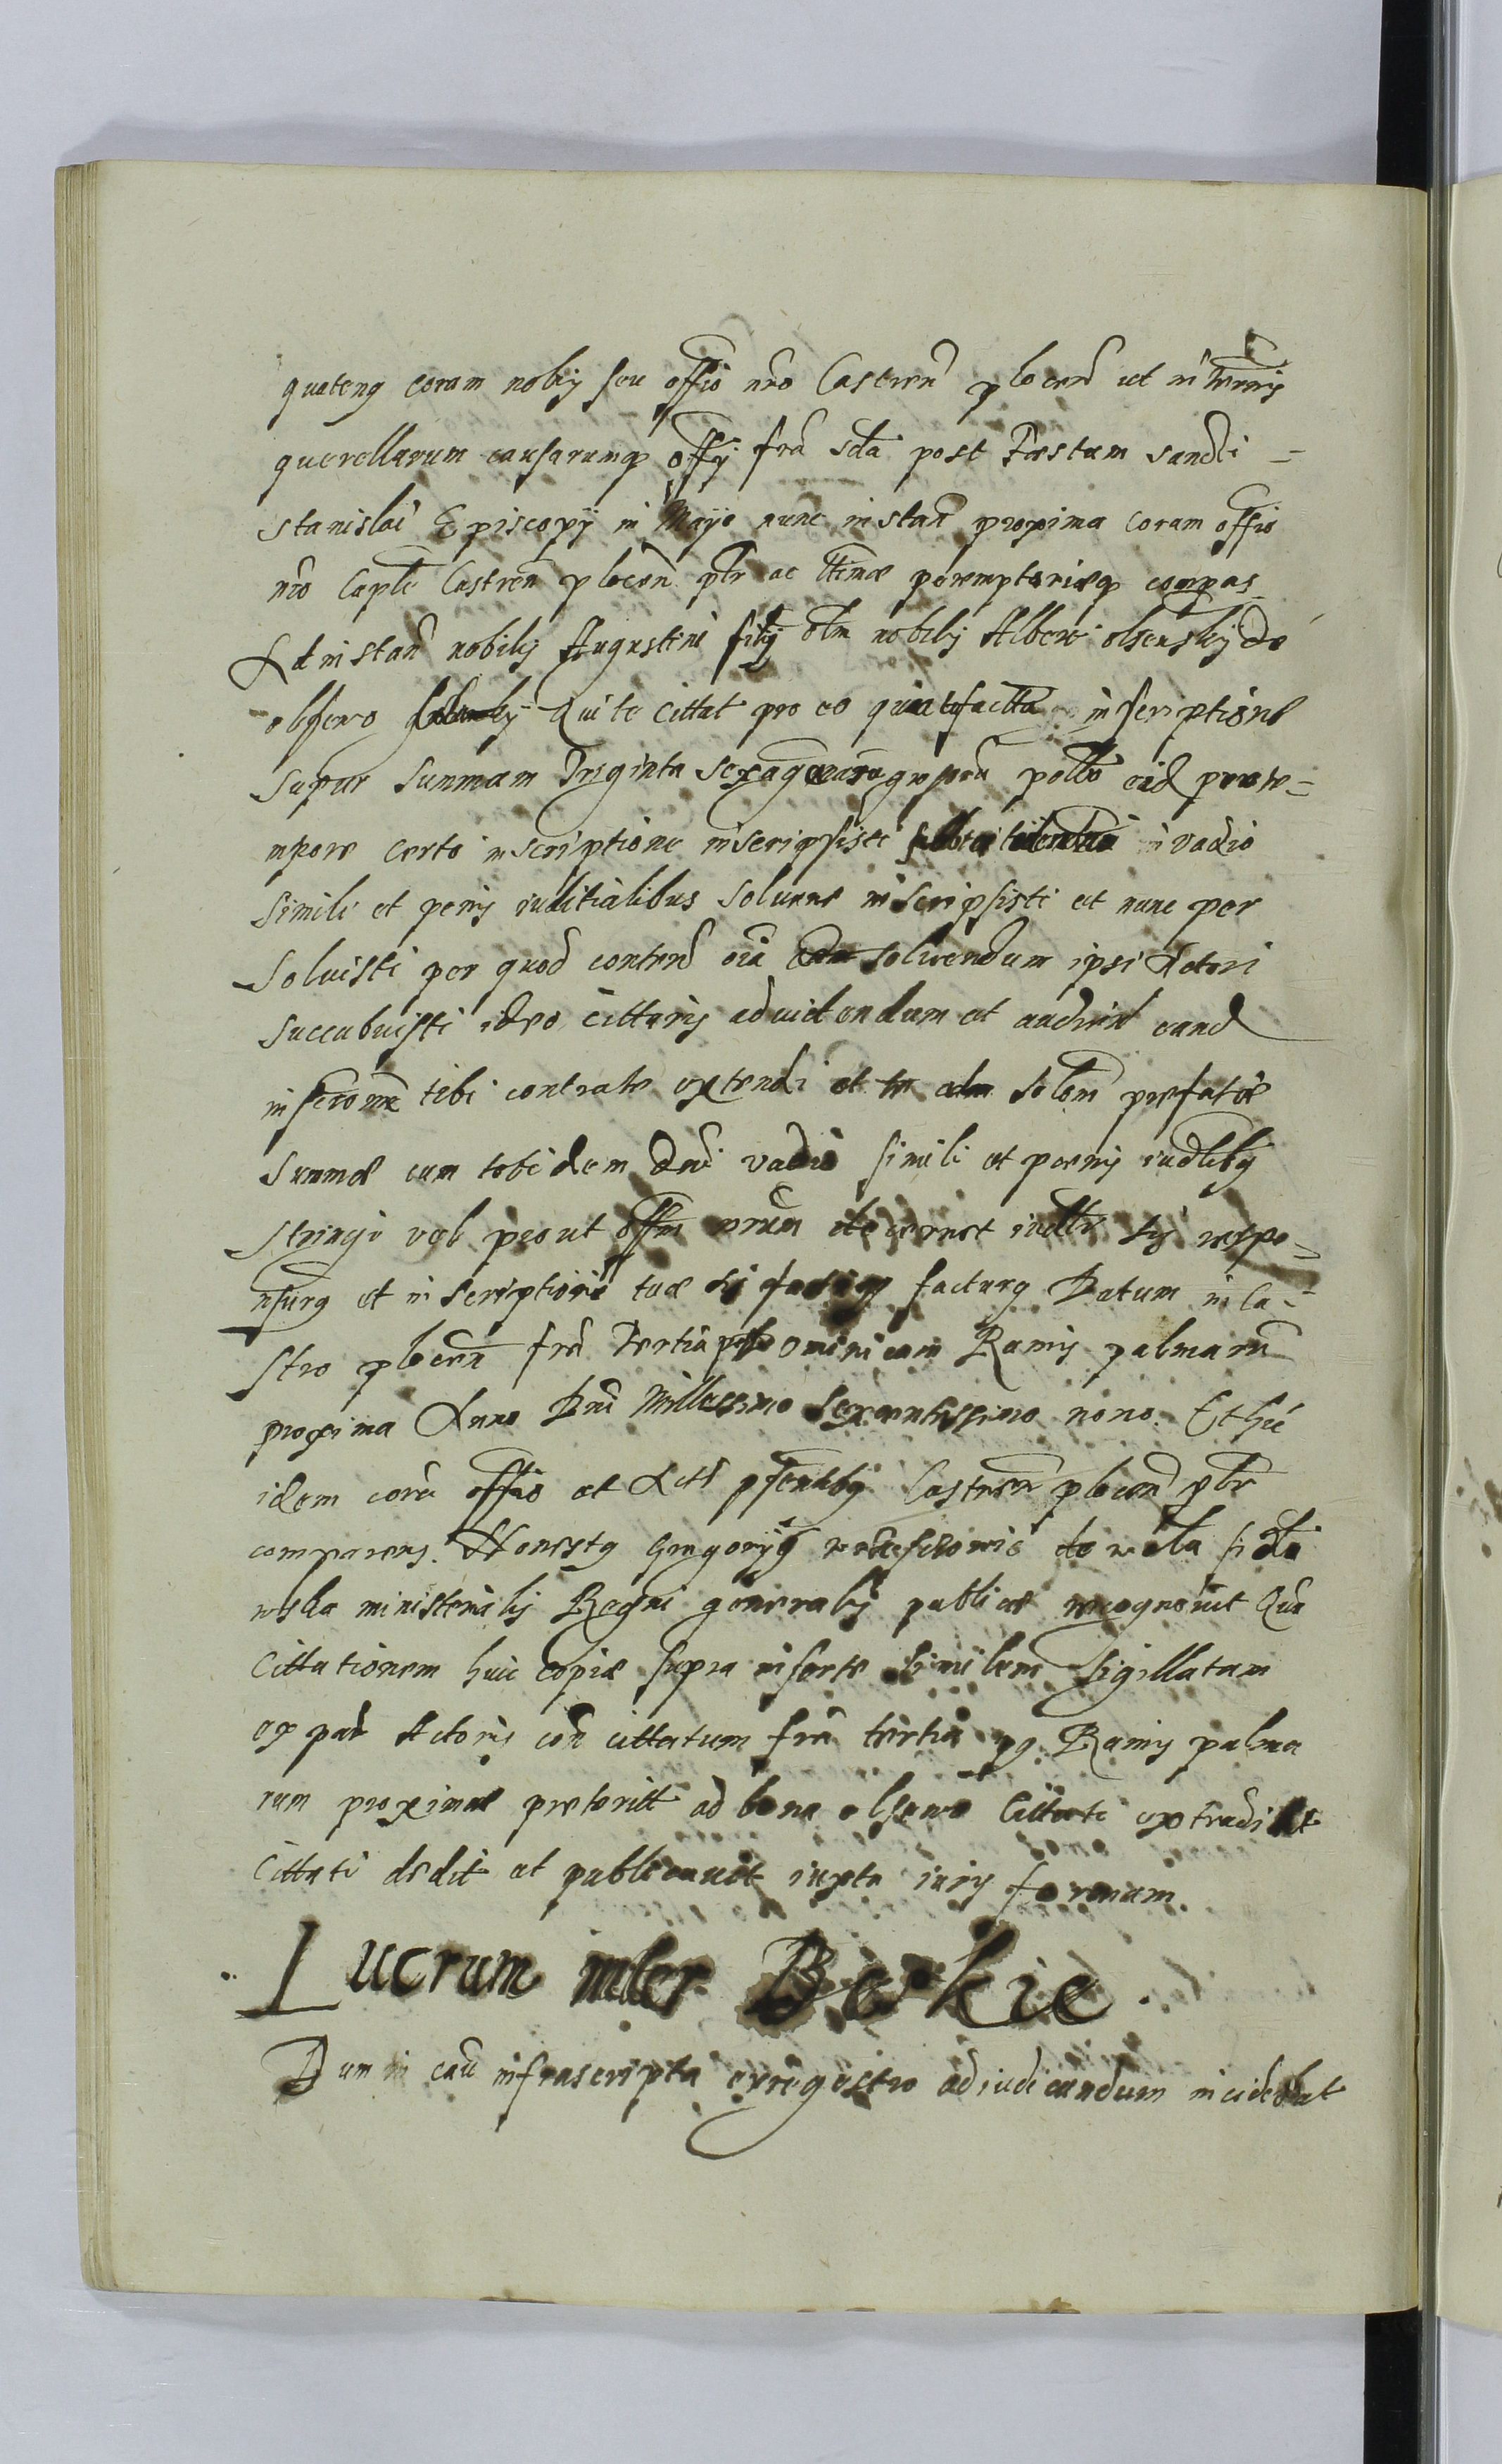 quateng coram nobis seu offio nro Castren plocen ut in terminis
querellarum causarumq offij fra scda post Festum sancti =
Stanislai Episcopij in Mayo nunc instan proxima coram offio
nro Capli Castren plocen ptr ac ltimæ peremptoriæq compas
Ad instan nobilis Augustini filij olm nobilis Alberti olsensky de
olssewo Qui te cittat pro eo quia inscriptione
Super Summam Triginta sexagenaru grossoru pollo eid prote=
mpore certo inscriptione inscripsisti in vadio
simili et penis iuditialibus solvere inscripsisti et nunc per
Soluisti per quod contend oia solvendum ipsi Actori
succubuisti ideo cittaris ad videndum et audiend eand
inscrõne tibi contrate extendi et te solem præfatæ
Summæ cum totidem dni vadio simili et poenis iudlibg
stringi vel prout offm nrum decernet iudtr sis respo=
nsurg et inscriptioni tuæ satis facturg Datum in Ca=
stro plocen fra Tertia post Dominicam Ramis palmaru
proxima Anno Dni Millessimo Sexcentissimo nono. Et hic
idem cora offio et Actis psentibg Castren plocen ptr
comparens. Honestg Gregoriyg de wola
wska ministerialis Regni generalis publice recognovit Qui
Cittationem huic copiæ supra inserte similem sigillatam
ex par Actoris con cittatum fra tertia pg. Ramis palma
rum proxime preteritt ad bona olsewo Cittati extradidit
Cittati dedit et publicavit iuxta iuris formam.
Lucrum inter Beskie.
Dum in cau infrascripta ex regestro adiudicandum incidebat